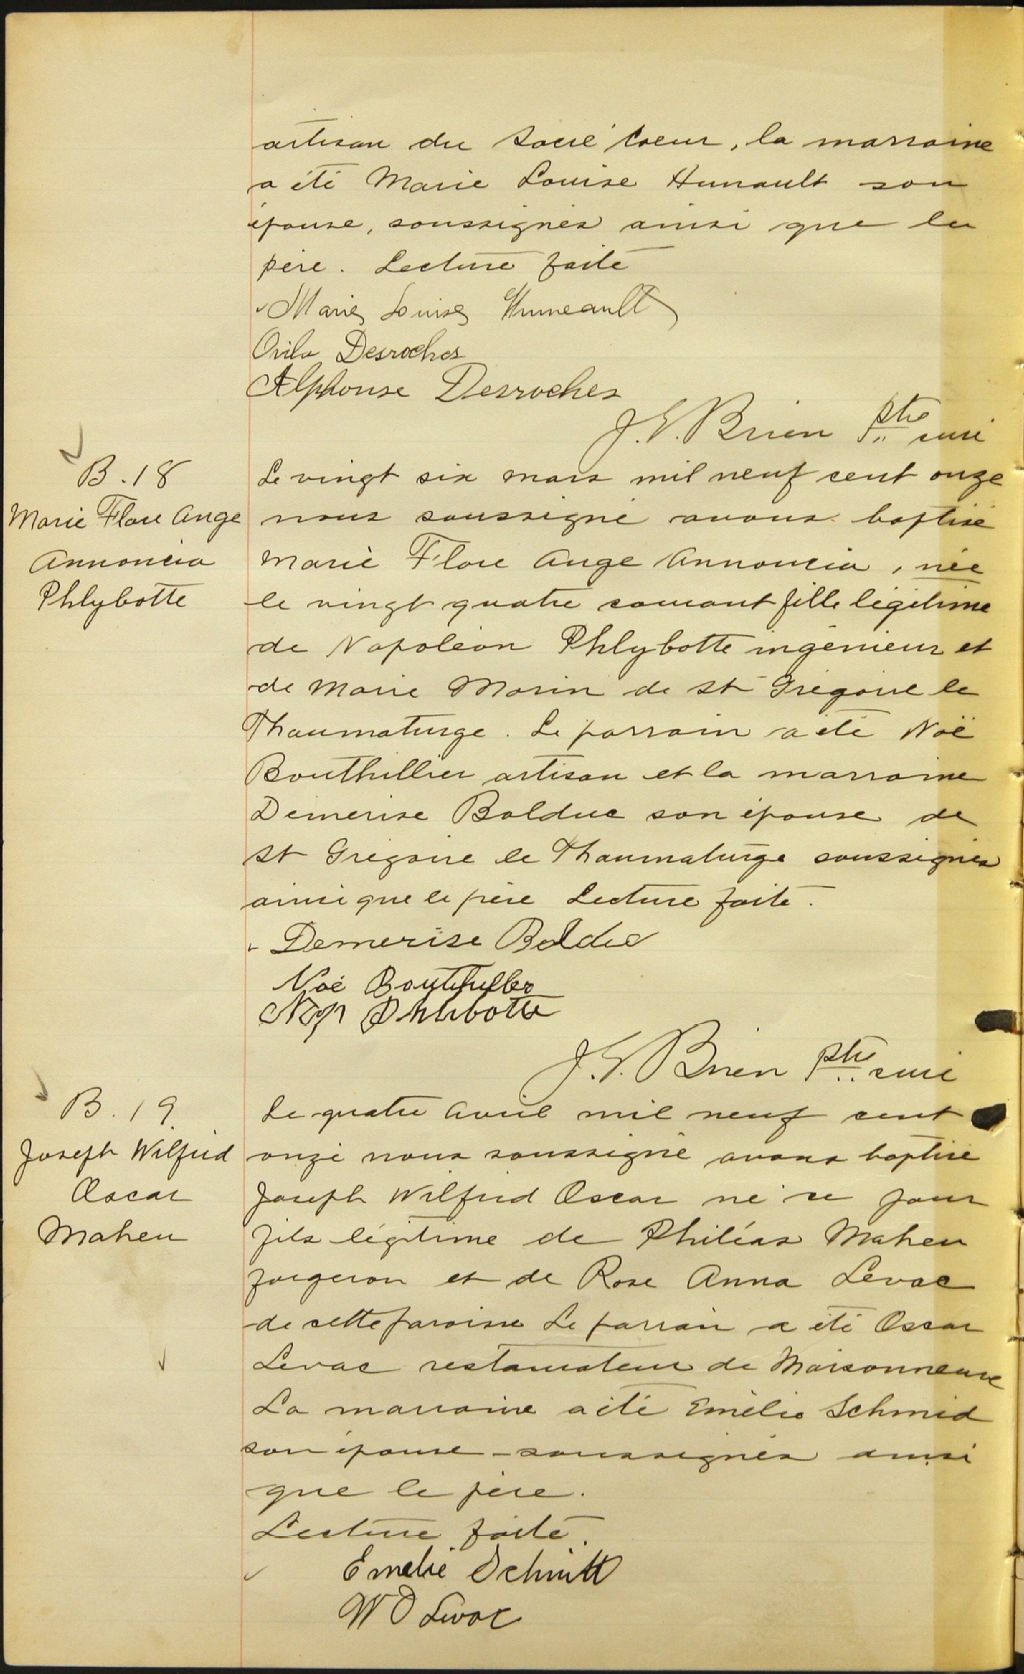 artisan du Sacré Coeur, la marraine
a été Marie Louise Hunault son
épouse, soussignés ainsi que le
père. Lecture faite
Marie Louise Huneault
Ovila Desroches
Alphonse Desroches
J. E. Brien Ptre curé
B. 18
Marie Flore Ange
Annoncia
Phlybotte
Le vingt six mars mil neuf cent onze
nous soussigné avons baptisé
Marie Flore Ange Annoncia, née
le vingt quatre courant fille légitime
de Napoléon Phlybotte ingénieur et
de Marie Morin de St Grégoire le
Thaumaturge. Le parrain a été Noé
Bouthillier artisan et la marraine
Démerise Bolduc son épouse de
St Grégoire le Thaumaturge soussignés
ainsi que le père Lecture faite.
Demerise Bolduc
Noé Bouthillier
Nap Phlibotte
J. E. Brien Ptre curé
B. 19
Joseph Wilfrid
Oscar
Maheu
Le quatre Avril mil neuf cent
onze nous soussigné avons baptisé
Joseph Wilfrid Oscar né ce jour
fils légitime de Philéas Maheu
forgeron et de Rose Anna Levac
de cette paroisse Le parrain a été Oscar
Levac restaurateur de Maisonneuve
La marraine a été Emélie Schmid
son épouse soussignés ainsi
que le père.
Lecture faite.
Emelie Schmitt
W O Levac